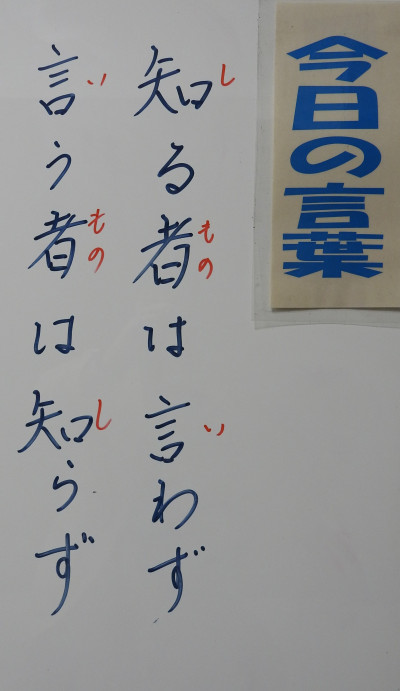 今日の言葉
知る者は言わず
し もの い
言う者は知らず
い もの し